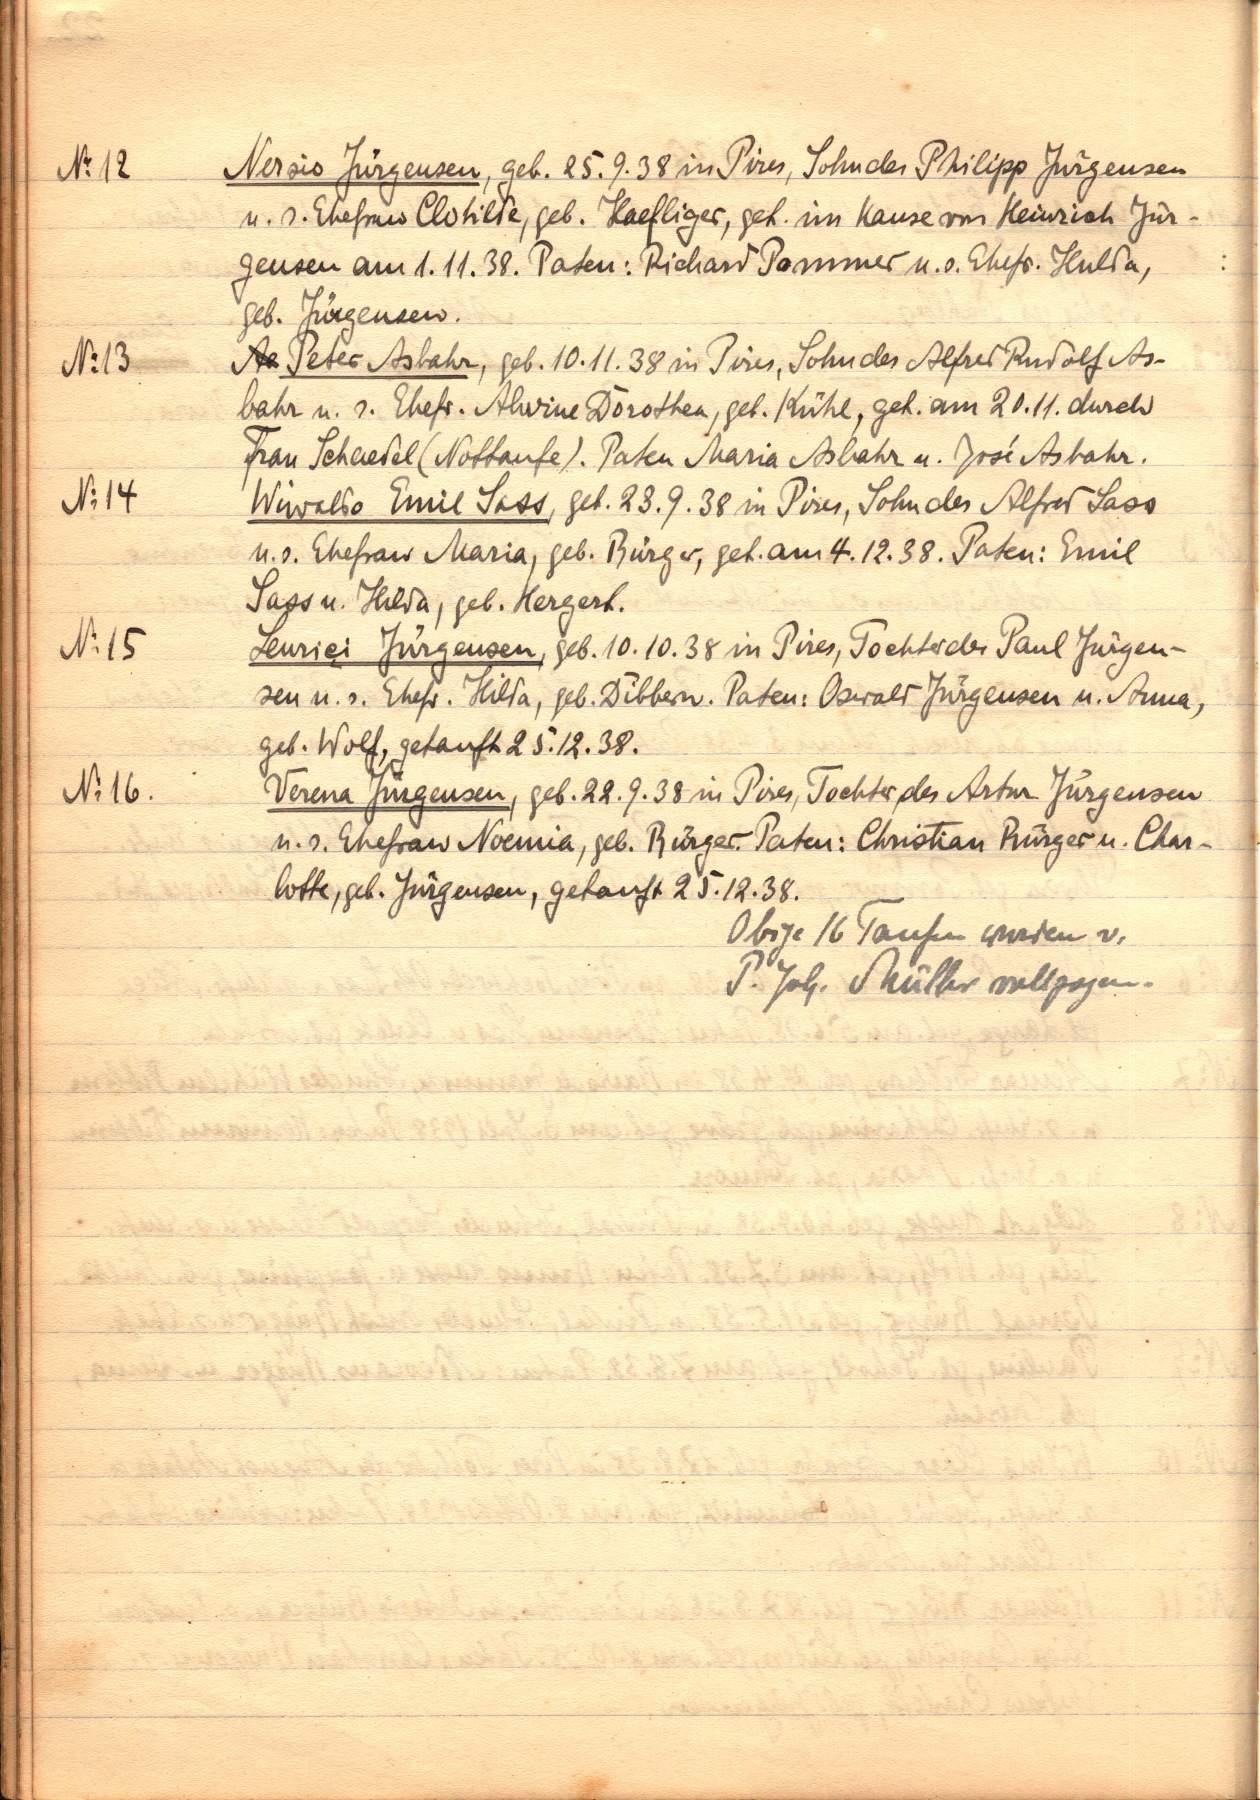 Nr. 12 Nersio Jürgensen, geb. 25.9.38 in Pires, Sohn des Philipp Jürgensen
u. s. Ehefrau Clotilde, geb. Haefliger, get. im Hause von Heinrich Jür-
gensen am 1.11.38. Paten: Richard Pommer u. s. Ehefr. Hulda,
geb. Jürgensen.
Nr. 13 Peter Asbahr, geb. 10.11.38 in Pires, Sohn des Alfred Rudolf As-
bahr u. s. Ehefr. Alwine Dorothea, geb. Kühl, get. am 20.11. durch
Frau Schaedel (Nottaufe). Paten Maria Asbahr u. José Asbahr.
Nr. 14 Wiwaldo Emil Sass, geb. 23.9.38 in Pires, Sohn des Alfred Sass
u. s. Ehefrau Maria, geb. Bürger, get. am 4.12.38. Paten: Emil
Sass u. Hilda, geb. Hergert.
Nr. 15 Leurici Jürgensen, geb. 10.10.38 in Pires, Tochter des Paul Jürgen-
sen u. s. Ehefr. Hilda, geb. Dibbern. Paten: Oswald Jürgensen u. Anna,
geb. Wolf, getauft 25.12.38.
Nr. 16. Verena Jürgensen, geb. 22.9.38 in Pires, Tochter des Artur Jürgensen
u. s. Ehefrau Noemia, geb. Bürger. Paten: Christian Bürger u. Char-
lotte, geb. Jürgensen, getauft 25.12.38.
Obige 16 Taufen wurden v.
P. Joh. Müller vollzogen.